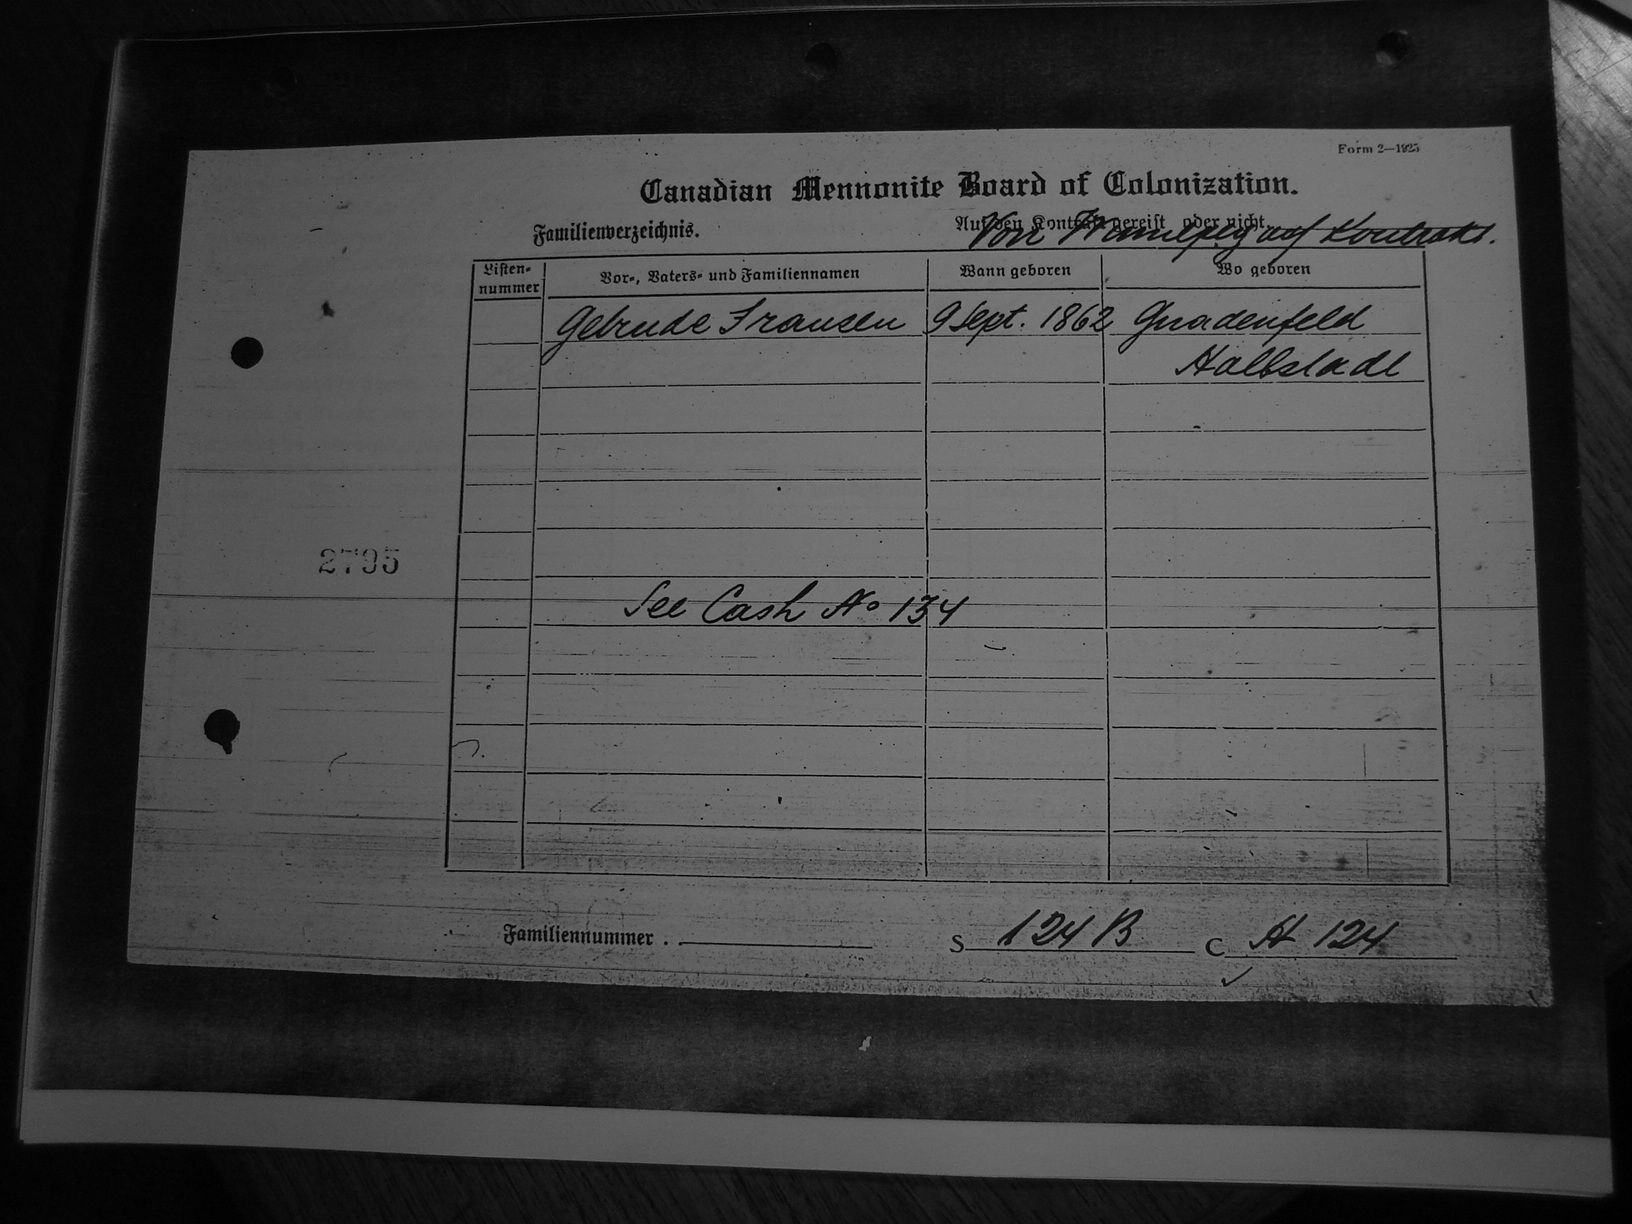 Form 2—1925
Canadian Mennonite Board of Colonization.
Familienverzeichnis.
Auf den Kontrakt gereist oder nicht
Von Winnipeg auf Kontrakt.
Listen-nummer Vor-, Vaters- und Familiennamen Wann geboren Wo geboren
Getrude Fransen 9 Sept. 1862 Gnadenfeld
Halbstadt
2795
See Cash No 134
Familiennummer . S 124 B C A 124